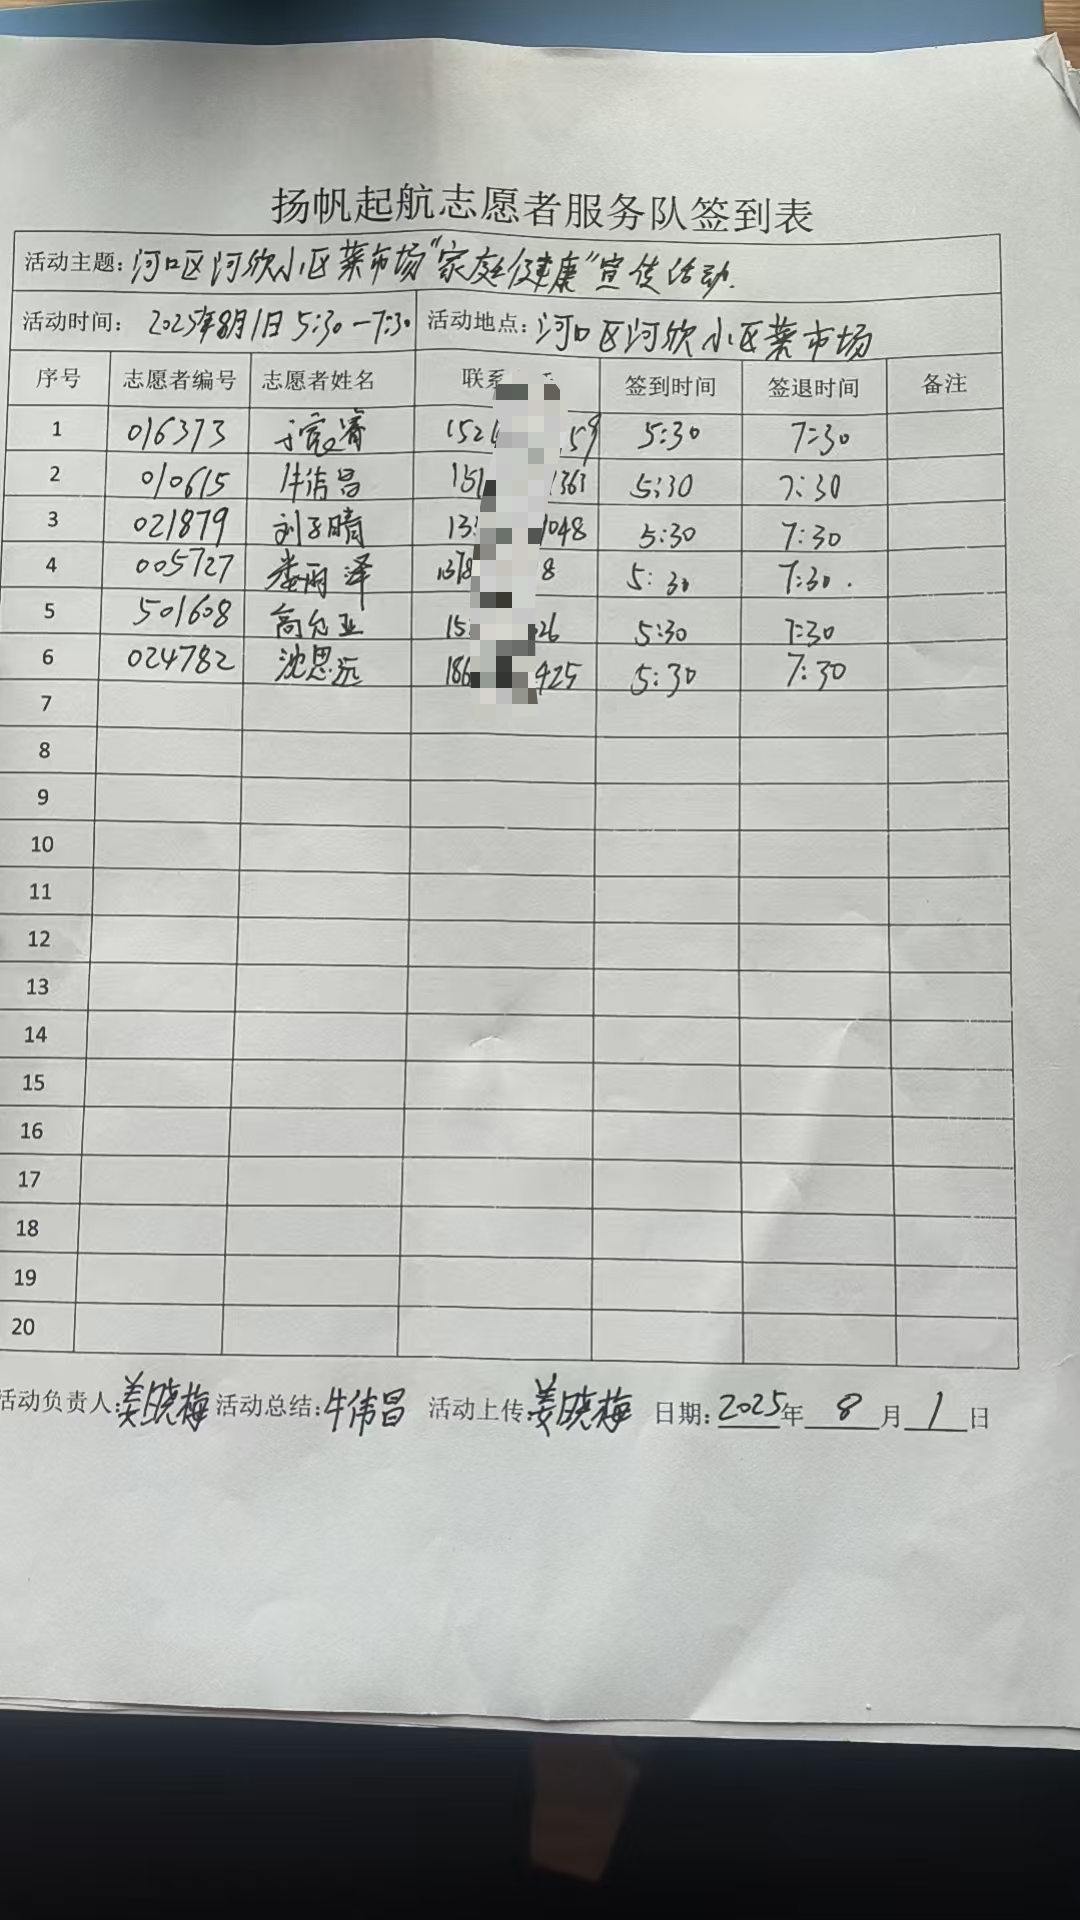 扬帆起航志愿者服务队签到表
活动主题：河口区河欣小区菜市场“家庭健康”宣传活动.
活动时间： 2025年8月1日 5:30—7:30 活动地点：河口区河欣小区菜市场
序号 志愿者编号 志愿者姓名 联系 签到时间 签退时间 备注
1 016373 152 59 5:30 7:30
2 010615 牛伟昌 151 1363 5:30 7:30
3 021879 刘子晴 13 1048 5:30 7:30
4 005727 娄雨泽 1378 8 5:30 7:30.
5 501608 高允亚 15 26 5:30 7:30
6 024782 沈思远 186 425 5:30 7:30
7
8
9
10
11
12
13
14
15
16
17
18
19
20
活动负责人：姜晓梅 活动总结：牛伟昌 活动上传：姜晓梅 日期：2025年 8 月 1 日